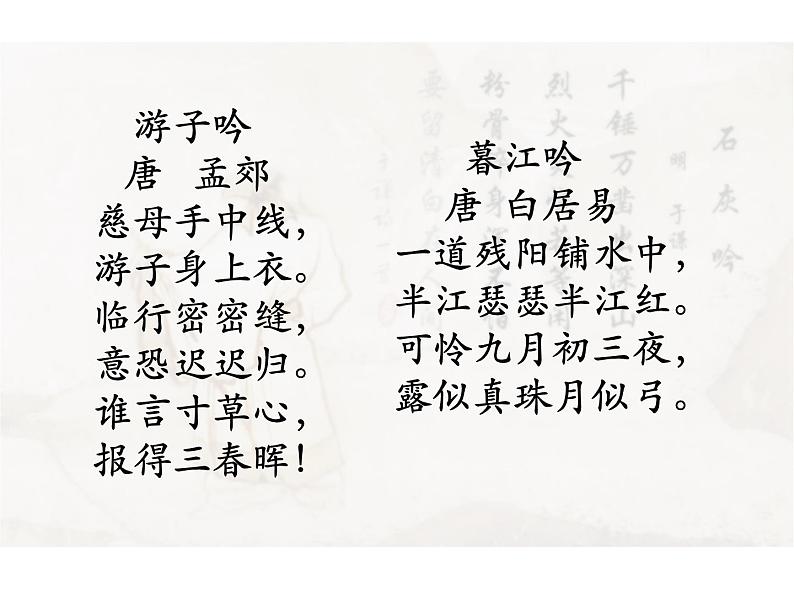 游子吟
唐 孟郊
慈母手中线，
游子身上衣。
临行密密缝，
意恐迟迟归。
谁言寸草心，
报得三春晖！
暮江吟
唐 白居易
一道残阳铺水中，
半江瑟瑟半江红。
可怜九月初三夜，
露似真珠月似弓。
石灰吟
明 于谦
千锤万凿出深山